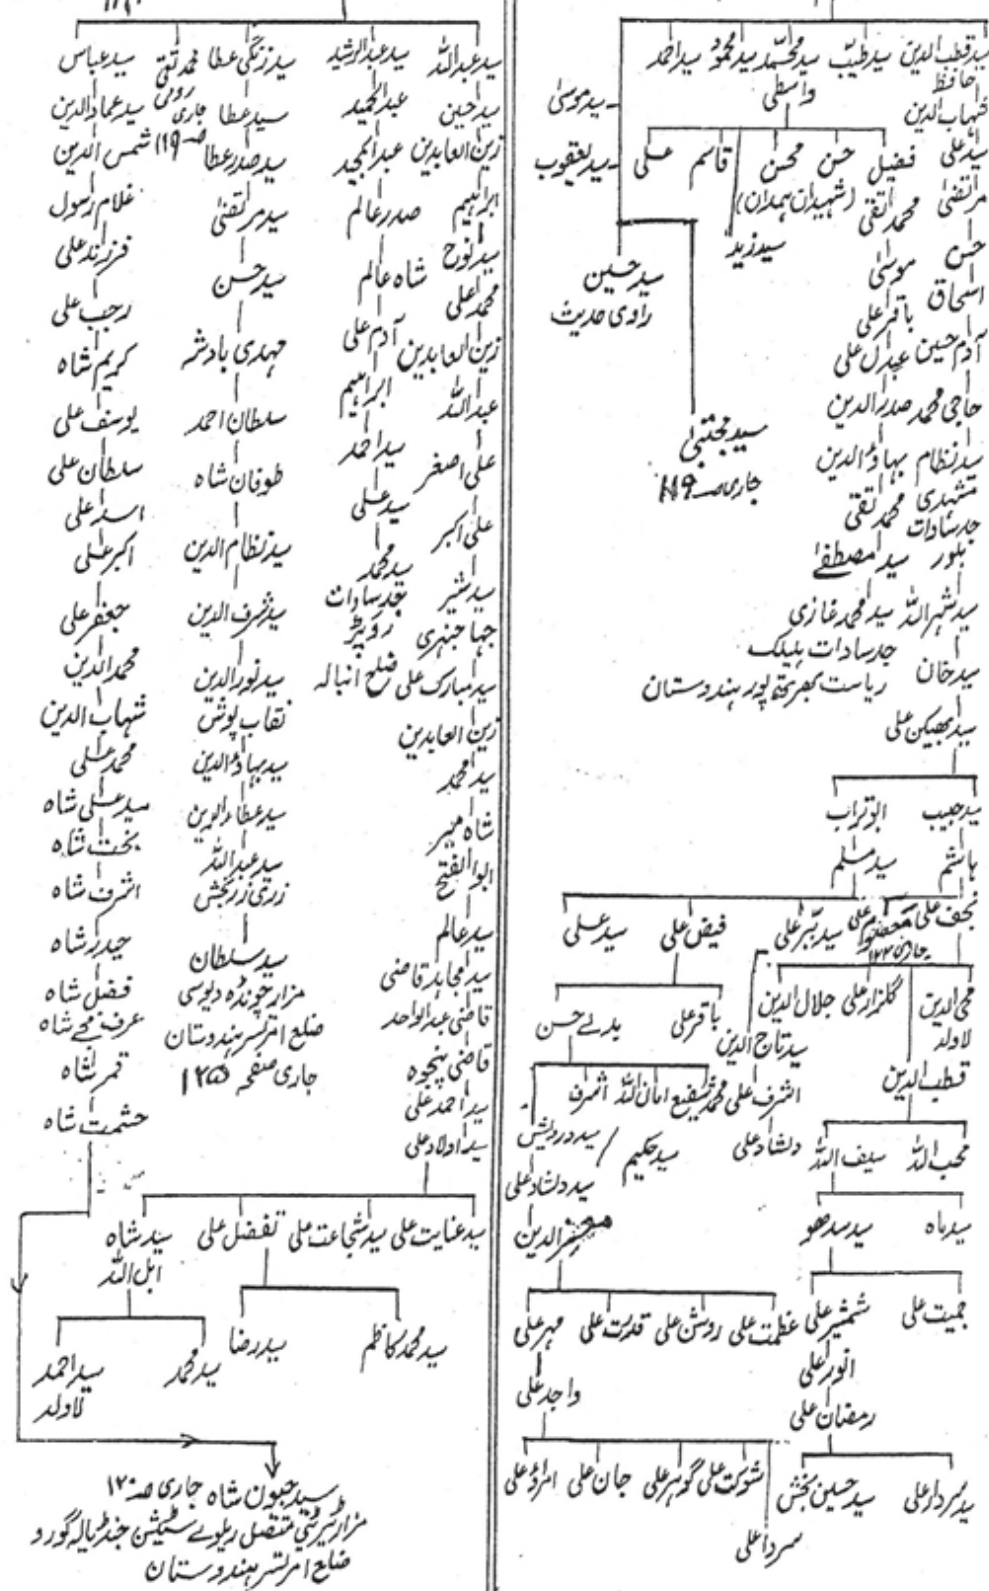 سید قطب الدین سید طیب سید محمد سید محمود سید احمد
حافظ
شہاب الدین
واسطی
سید علی
مرتضیٰ
حسن
اسحاق
آدم حسین
حاجی محمد
سید نظام
مشہدی
جد سادات
بلور
سید شہر اللہ
سید خان
سید بھیکن علی
فضیل حسن محسن قاسم علی
(شہیدان ہمدان)
سید زید
محمد اتقی
موسیٰ
باقر علی
عبدل علی
صدر الدین
بہاؤ الدین
محمد تقی
سید مصطفےٰ
سید محمد غازی
جد سادات
ریاست بھرتپور ہندوستان
سید موسیٰ
سید یعقوب
سید حسین
راوی حدیث
سید مجتبیٰ
جاری صہ ۱۱۹
سید حبیب ابو تراب
ہاشم سید مسلم
نجف علی معصوم علی سید تبر علی فیض علی سید علی
محی الدین گلزار علی جلال الدین
لاولد
قطب الدین
سید تاج الدین
باقر علی حسن
اشرف علی محمد شفیع امان اللہ اشرف
محب اللہ سیف اللہ دلشاد علی سید حکیم سید درویش
سید دلشاد علی
سید ماہ سید سدھو
جمیت علی شمشیر علی
انور علی
رمضان علی
سید سردار علی سید حسین بخش
عظمت علی روشن علی قدرت علی مہر علی
واجد علی
شوکت علی گوہر علی جان علی امراؤ علی
سردار علی
سید عبداللہ سید عبدالرشید سید زنگی عطا محمد تقی سید عباس
سید حسین
زین العابدین
ابراہیم
سید نوح
محمد علی
زین العابدین
عبداللہ
علی اصغر
علی اکبر
سید شیر
جہاجنیری
سید مبارک علی
زین العابدین
سید محمد
شاہ میر
ابو الفتح
سید عالم
سید مجاہد قاضی
قاضی عبدالواحد
قاضی پنجوہ
سید احمد علی
سید اولاد علی
عبدالحمید
عبدالمجید
صدر عالم
شاہ عالم
آدم علی
ابراہیم
سید احمد
سید علی
سید محمد
جد سادات
روپڑ
ضلع انبالہ
سید عطا
سید صدر عطا
سید مرتضیٰ
سید حسن
مہدی بادشہ
سلطان احمد
طوفان شاہ
سید نظام الدین
سید شرف الدین
سید نور الدین
نقاب پوش
سید بہاؤ الدین
سید عطاء الدین
سید عبداللہ
زری زر بخش
سید سلطان
مزار چونڈہ دیوسی
ضلع امرتسر ہندوستان
جاری صفحہ ۱۲۵
رومی
جاری
صہ ۱۱۹
سید عماد الدین
شمس الدین
غلام رسول
فرزند علی
رجب علی
کریم شاہ
یوسف علی
سلطان علی
اسد علی
اکبر علی
جعفر علی
محمد الدین
شہاب الدین
محمد علی
سید علی شاہ
بخت شاہ
اشرف شاہ
حیدر شاہ
فضل شاہ
قمر شاہ
حشمت شاہ
سید عنایت علی سید شجاعت علی تفضل علی سید شاہ
اہل اللہ
سید محمد کاظم سید رضا سید محمد سید احمد
لاولد
سید جیون شاہ جاری صہ ۱۲۰
متصل ریلوے سٹیشن جنڈیالہ گورو
ضلع امرتسر ہندوستان